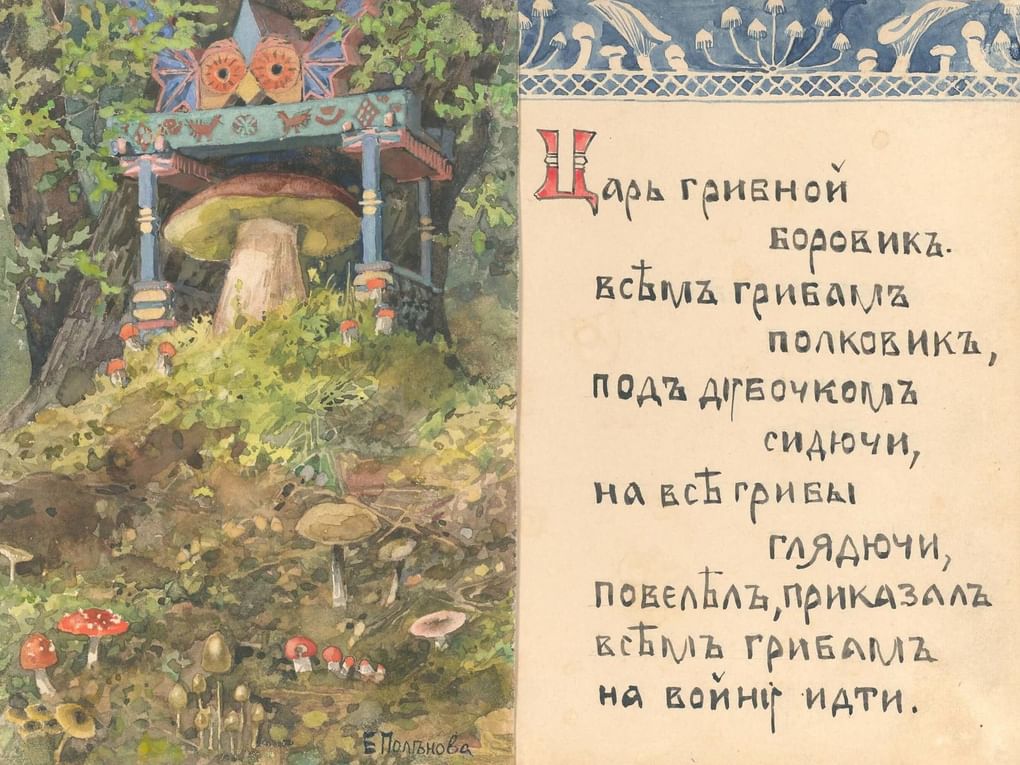 Е Полѣнова
Царь грибной
боровикъ.
всѣмъ грибамъ
полковикъ,
подъ дубочкомъ
сидючи,
на всѣ грибы
глядючи,
повелѣлъ, приказалъ
всѣмъ грибамъ
на войну идти.